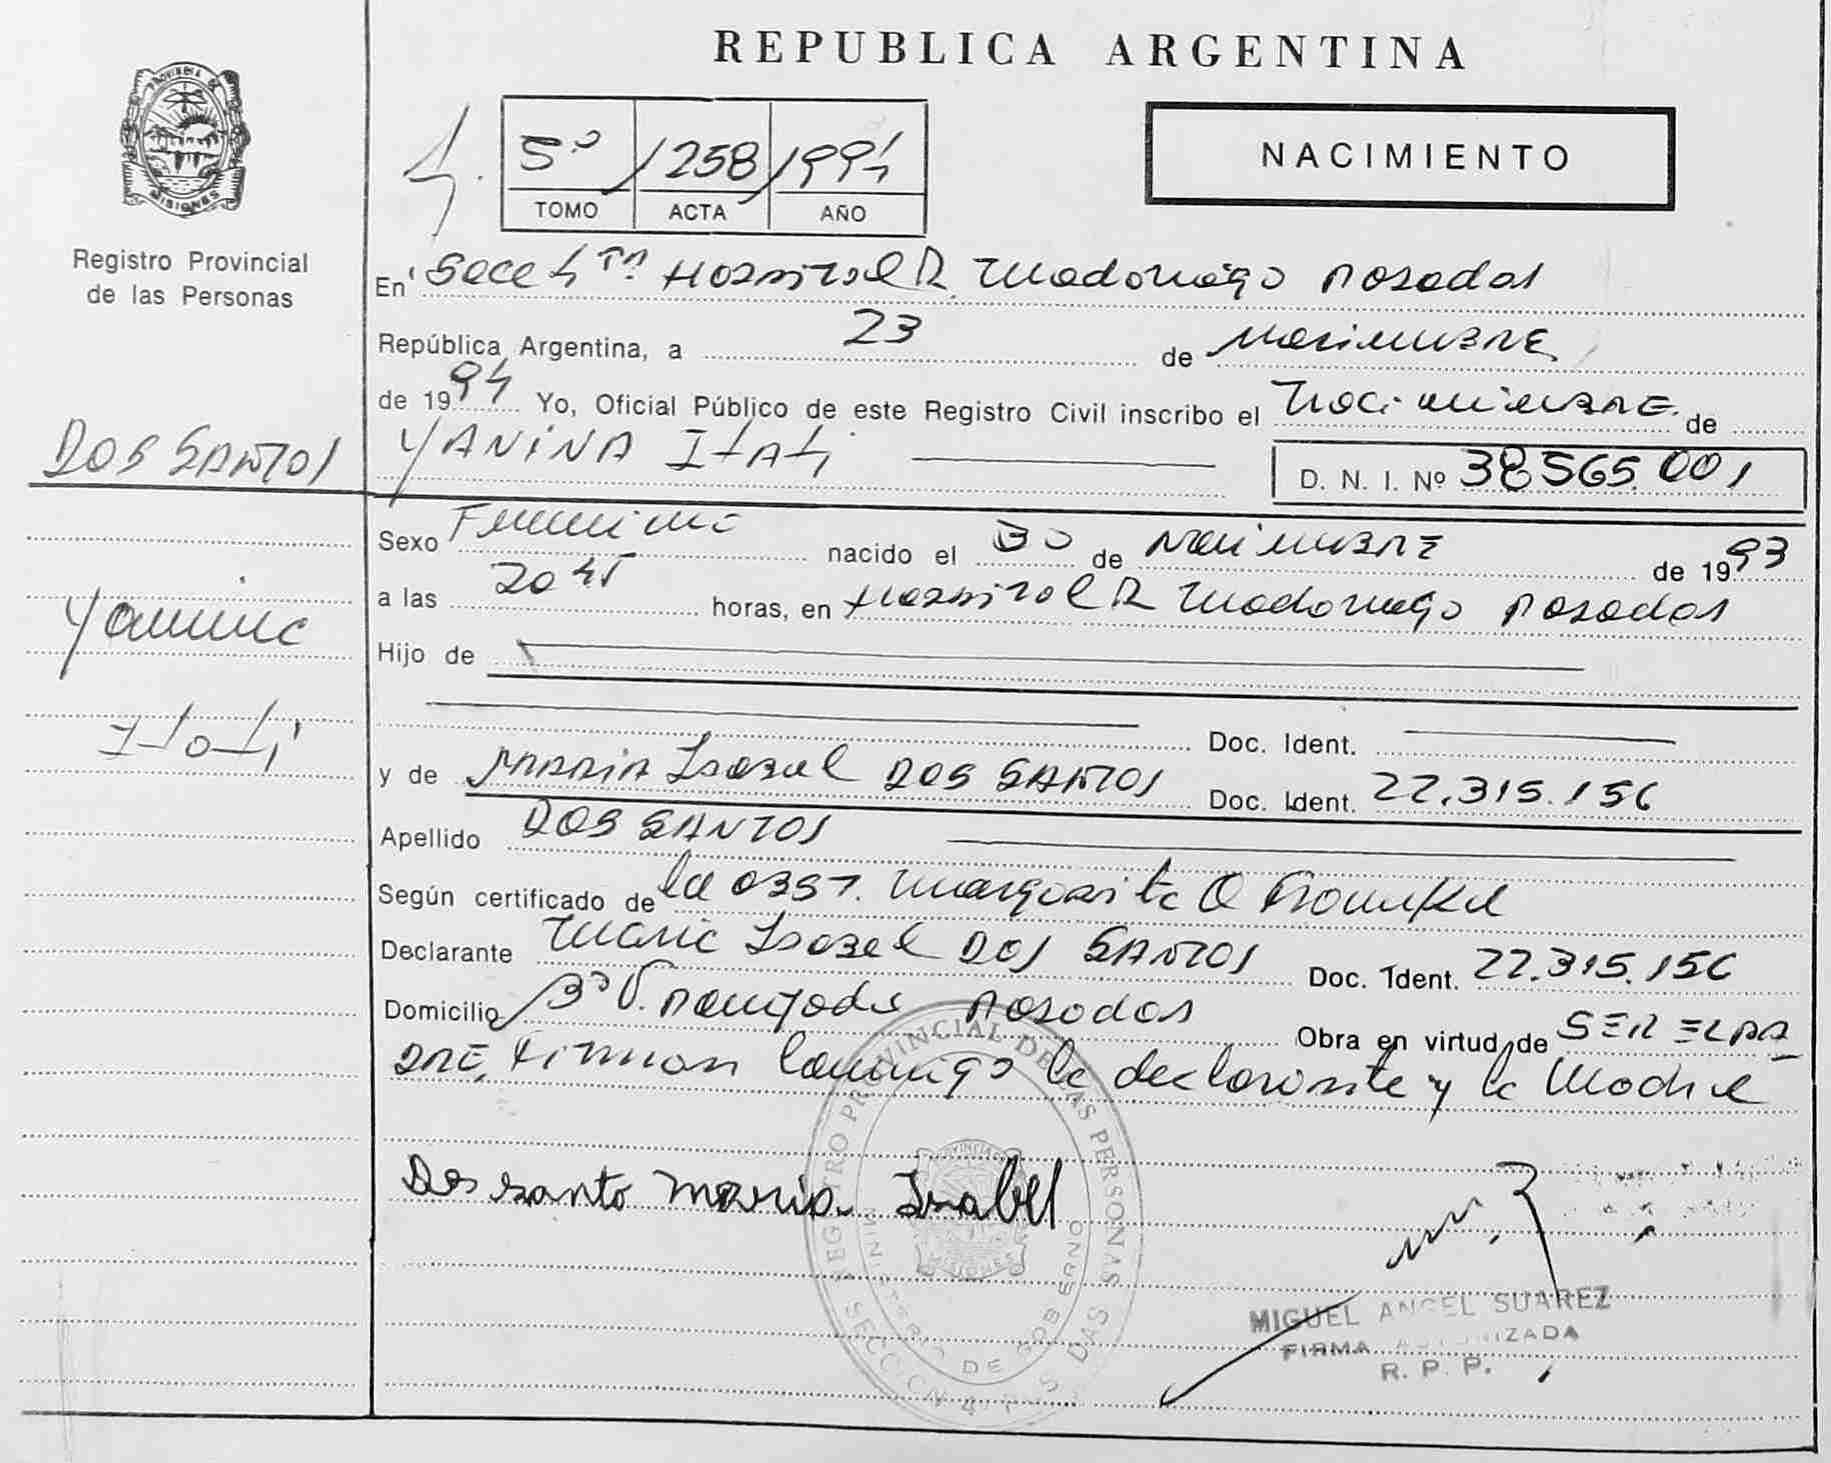 REPUBLICA ARGENTINA
PROVINCIA DE
MISIONES
Registro Provincial
de las Personas
4.
5º 1258 1994
TOMO ACTA AÑO
NACIMIENTO
En Secc 4ta Hospital R. Madariaga Posadas
República Argentina, a 23 de Noviembre
de 1994 Yo, Oficial Público de este Registro Civil inscribo el de
YANINA ItAti D. N. I. Nº 38565.001
DOS SANTOS
Yanina
Itati
Sexo Femenino nacido el 30 de Noviembre de 1993
a las 20 45 horas, en Hospital R Madariaga Posadas
Hijo de
Doc. Ident.
y de MARIA Isabel DOS SANTOS Doc. Ident. 22.315.156
Apellido DOS SANTOS
Según certificado de la obst. Margarita
Declarante Maria Isabel DOS SANTOS Doc. Ident. 22.315.156
Domicilio Posadas Obra en virtud de SER
Firman conmigo la declarante y la Madre
Dos santo maria Isabel
REGISTRO PROVINCIAL DE LAS PERSONAS
MINISTERIO DE GOBIERNO
MISIONES
MIGUEL ANGEL SUAREZ
FIRMA AUTORIZADA
R. P. P.